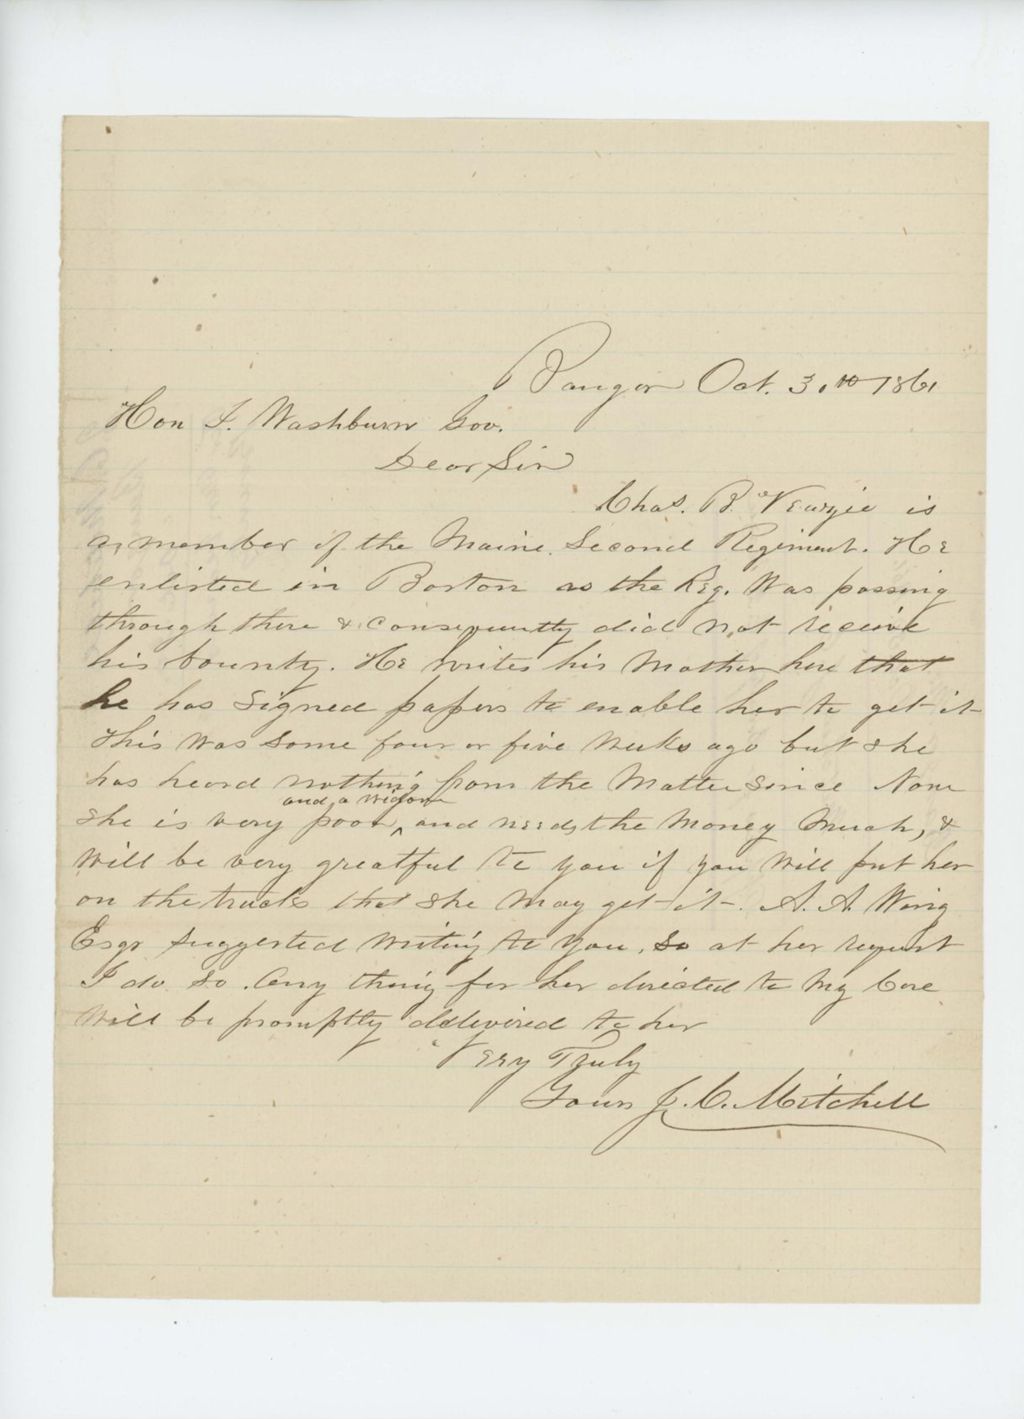 Bangor Oct. 30th 1861
Hon I. Washburn Gov.
Dear Sir
Chas. B. Veazie is
a member of the Maine Second Regiment. He
enlisted in Boston as the Reg. Was passing
through there & consequently did not receive
his bounty. He writes his Mother here that
he has Signed papers to enable her to get it
This Was Some four or five Weeks ago but She
has heard nothing from the Matter Since Now
and a widow
She is very poor, and needs the Money Much, &
Will be very greatful to you if you Will put her
on the track that She May get it. A. A. Wing
Esqr Suggested Writing to You, So at her request
I do So. Any thing for her directed to My Care
Will be promptly delivered to her
Very Truly
Yours J. C. Mitchell